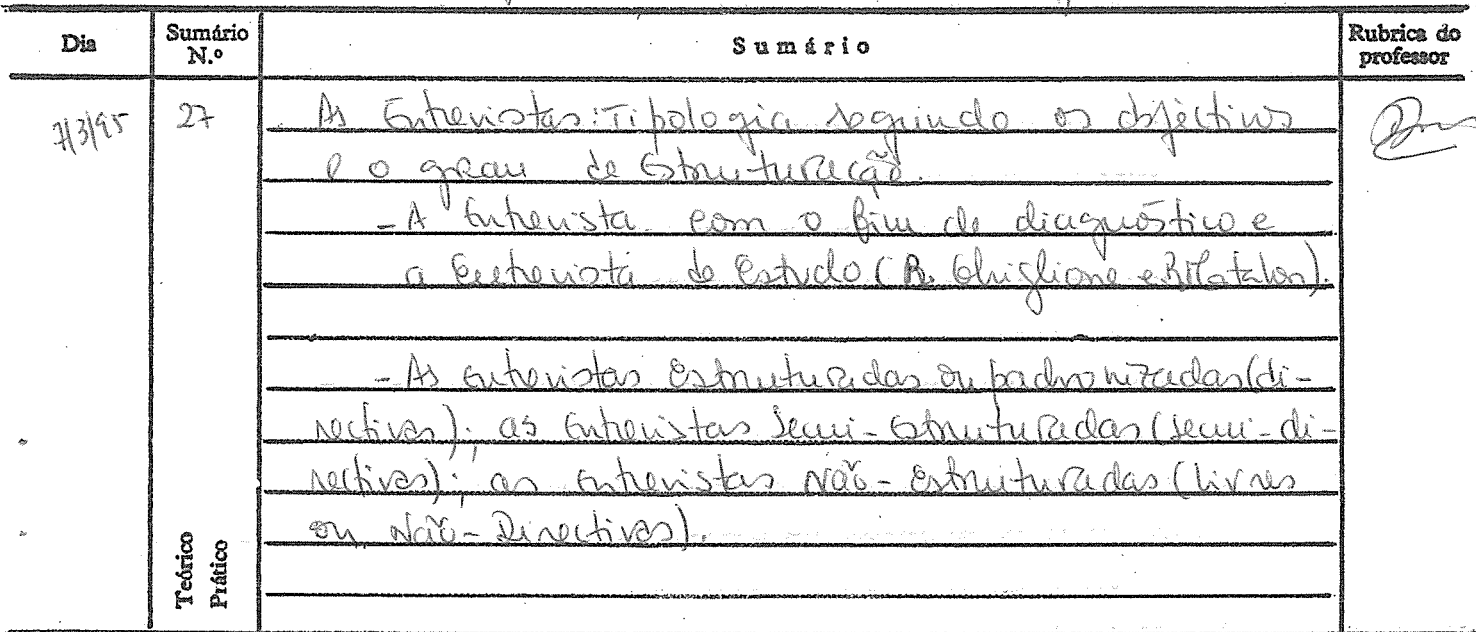 Dia
Sumário N.º
Sumário
Rubrica do professor
7/3/95
27
As Entrevistas: Tipologia segundo os objectivos
e o grau de Estruturação.
- A Entrevista com o fim de diagnóstico e
a Entrevista de Estudo (R. Ghiglione e B. Matalon).
- As entrevistas Estruturadas ou padronizadas (di-
rectivas); as Entrevistas Semi-Estruturadas (semi-di-
rectivas); as entrevistas Não-Estruturadas (livres
ou Não-Directivas).
Teórico
Prático